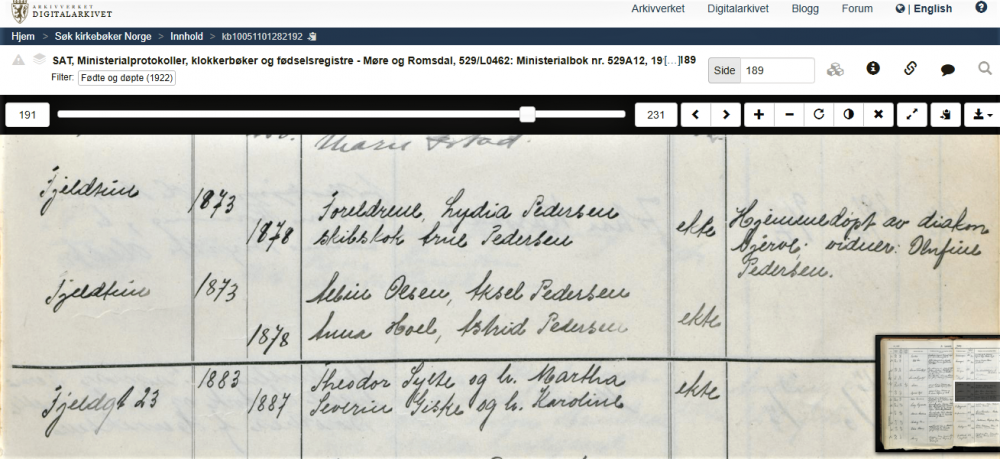 ARKIVVERKET
DIGITALARKIVET
Arkivverket Digitalarkivet Blogg Forum | English
Hjem > Søk kirkebøker Norge > Innhold > kb10051101282192
SAT, Ministerialprotokoller, klokkerbøker og fødselsregistre - Møre og Romsdal, 529/L0462: Ministerialbok nr. 529A12, 19[...]189
Filter: Fødte og døpte (1922)
Side 189
191 231
Maris
Fjeldtun 1873 Foreldrene, Lydia Pedersen
1878 skibskok Arne Pedersen ekte
Hjemmedøpt av diakon
vidner:
Pedersen.
Fjeldtun 1873 Olsen, Aksel Pedersen
1878 Anna Hoel, Astrid Pedersen ekte
Fjeldgt 23 1883 Theodor Sylte og h. Martha ekte
1887 Severin Giske og h. Karoline